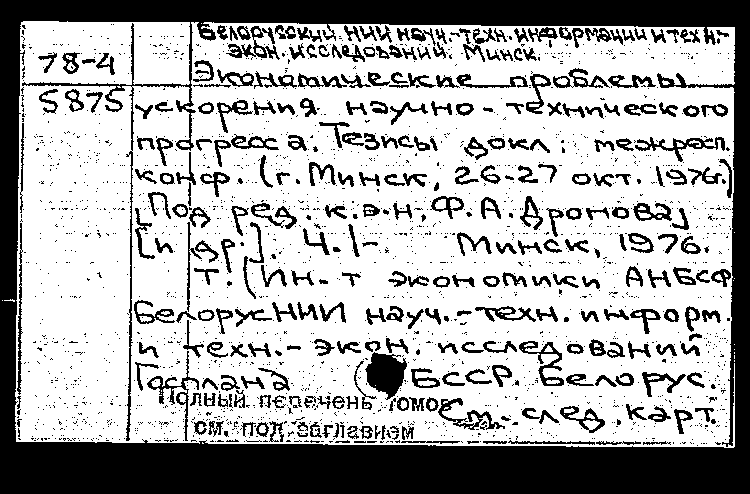 Белорусский НИИ науч.-техн. информации и техн.-
экон. исследований. Минск.
78-4
Экономические проблемы
5875
ускорения научно-технического
прогресса. Тезисы докл. межресп.
конф. (г. Минск, 26-27 окт. 1976г.)
[Под ред. к.э.н. Ф.А. Дронова]
[и др.]. Ч. 1-. Минск, 1976.
т. (Ин-т экономики АНБССР
БелорусНИИ науч.-техн. информ.
и техн.-экон. исследований
Госплана БССР. Белорус.
Полный перечень томов
См. след. карт.
см. под заглавием